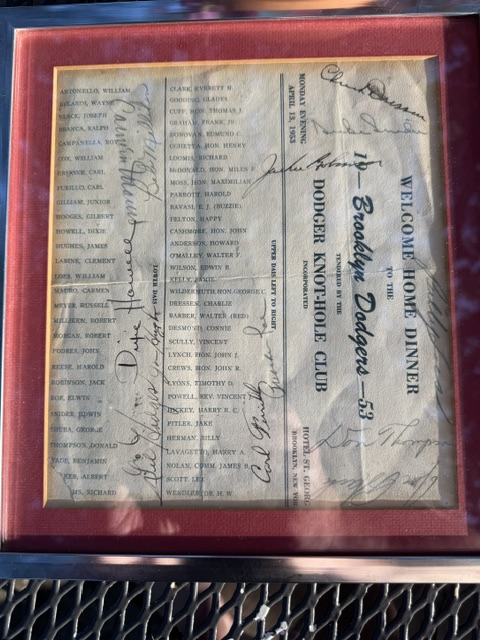 WELCOME HOME DINNER
TO THE
19—Brooklyn Dodgers—53
TENDERED BY THE
DODGER KNOT-HOLE CLUB
INCORPORATED
MONDAY EVENING
APRIL 13, 1953
HOTEL ST. GEORG
BROOKLYN, NEW YORK
Chuck Dressen
Duke Snider
Jackie Robinson
Don Thompson
Carl Furillo
UPPER DAIS LEFT TO RIGHT
CLARK, EVERETT M.
GOODING, GLADYS
CUFF, HON. THOMAS J.
GRAHAM, FRANK, JR.
DONOVAN, EDMUND C.
UGHETTA, HON. HENRY
LOOMIS, RICHARD
McDONALD, HON. MILES F.
MOSS, HON. MAXIMILIAN
PARROTT, HAROLD
BAVASI, E. J. (BUZZIE)
FELTON, HAPPY
CASHMORE, HON. JOHN
ANDERSON, HOWARD
O'MALLEY, WALTER F.
WILSON, EDWIN B.
KELLY, JAMIE
WILDERMUTH, HON. GEORGE C.
DRESSEN, CHARLIE
BARBER, WALTER (RED)
DESMOND, CONNIE
SCULLY, VINCENT
LYNCH, HON. JOHN J.
CREWS, HON. JOHN R.
LYONS, TIMOTHY D.
POWELL, REV. VINCENT
HICKEY, HARRY B. C.
PITLER, JAKE
HERMAN, BILLY
LAVAGETTO, HARRY A.
NOLAN, COMM. JAMES B.
SCOTT, LEE
WENDLER, DR. H. W.
LOWER DAIS
ANTONELLO, WILLIAM
BELARDI, WAYNE
BLACK, JOSEPH
BRANCA, RALPH
CAMPANELLA, ROY
COX, WILLIAM
ERSKINE, CARL
FURILLO, CARL
GILLIAM, JUNIOR
HODGES, GILBERT
HOWELL, DIXIE
HUGHES, JAMES
LABINE, CLEMENT
LOES, WILLIAM
MAURO, CARMEN
MEYER, RUSSELL
MILLIKEN, ROBERT
MORGAN, ROBERT
PODRES, JOHN
REESE, HAROLD
ROBINSON, JACK
ROE, ELWIN
SNIDER, EDWIN
SHUBA, GEORGE
THOMPSON, DONALD
WADE, BENJAMIN
KER, ALBERT
MS, RICHARD
Dixie Howell
Gil Hodges
Carmen Mauro